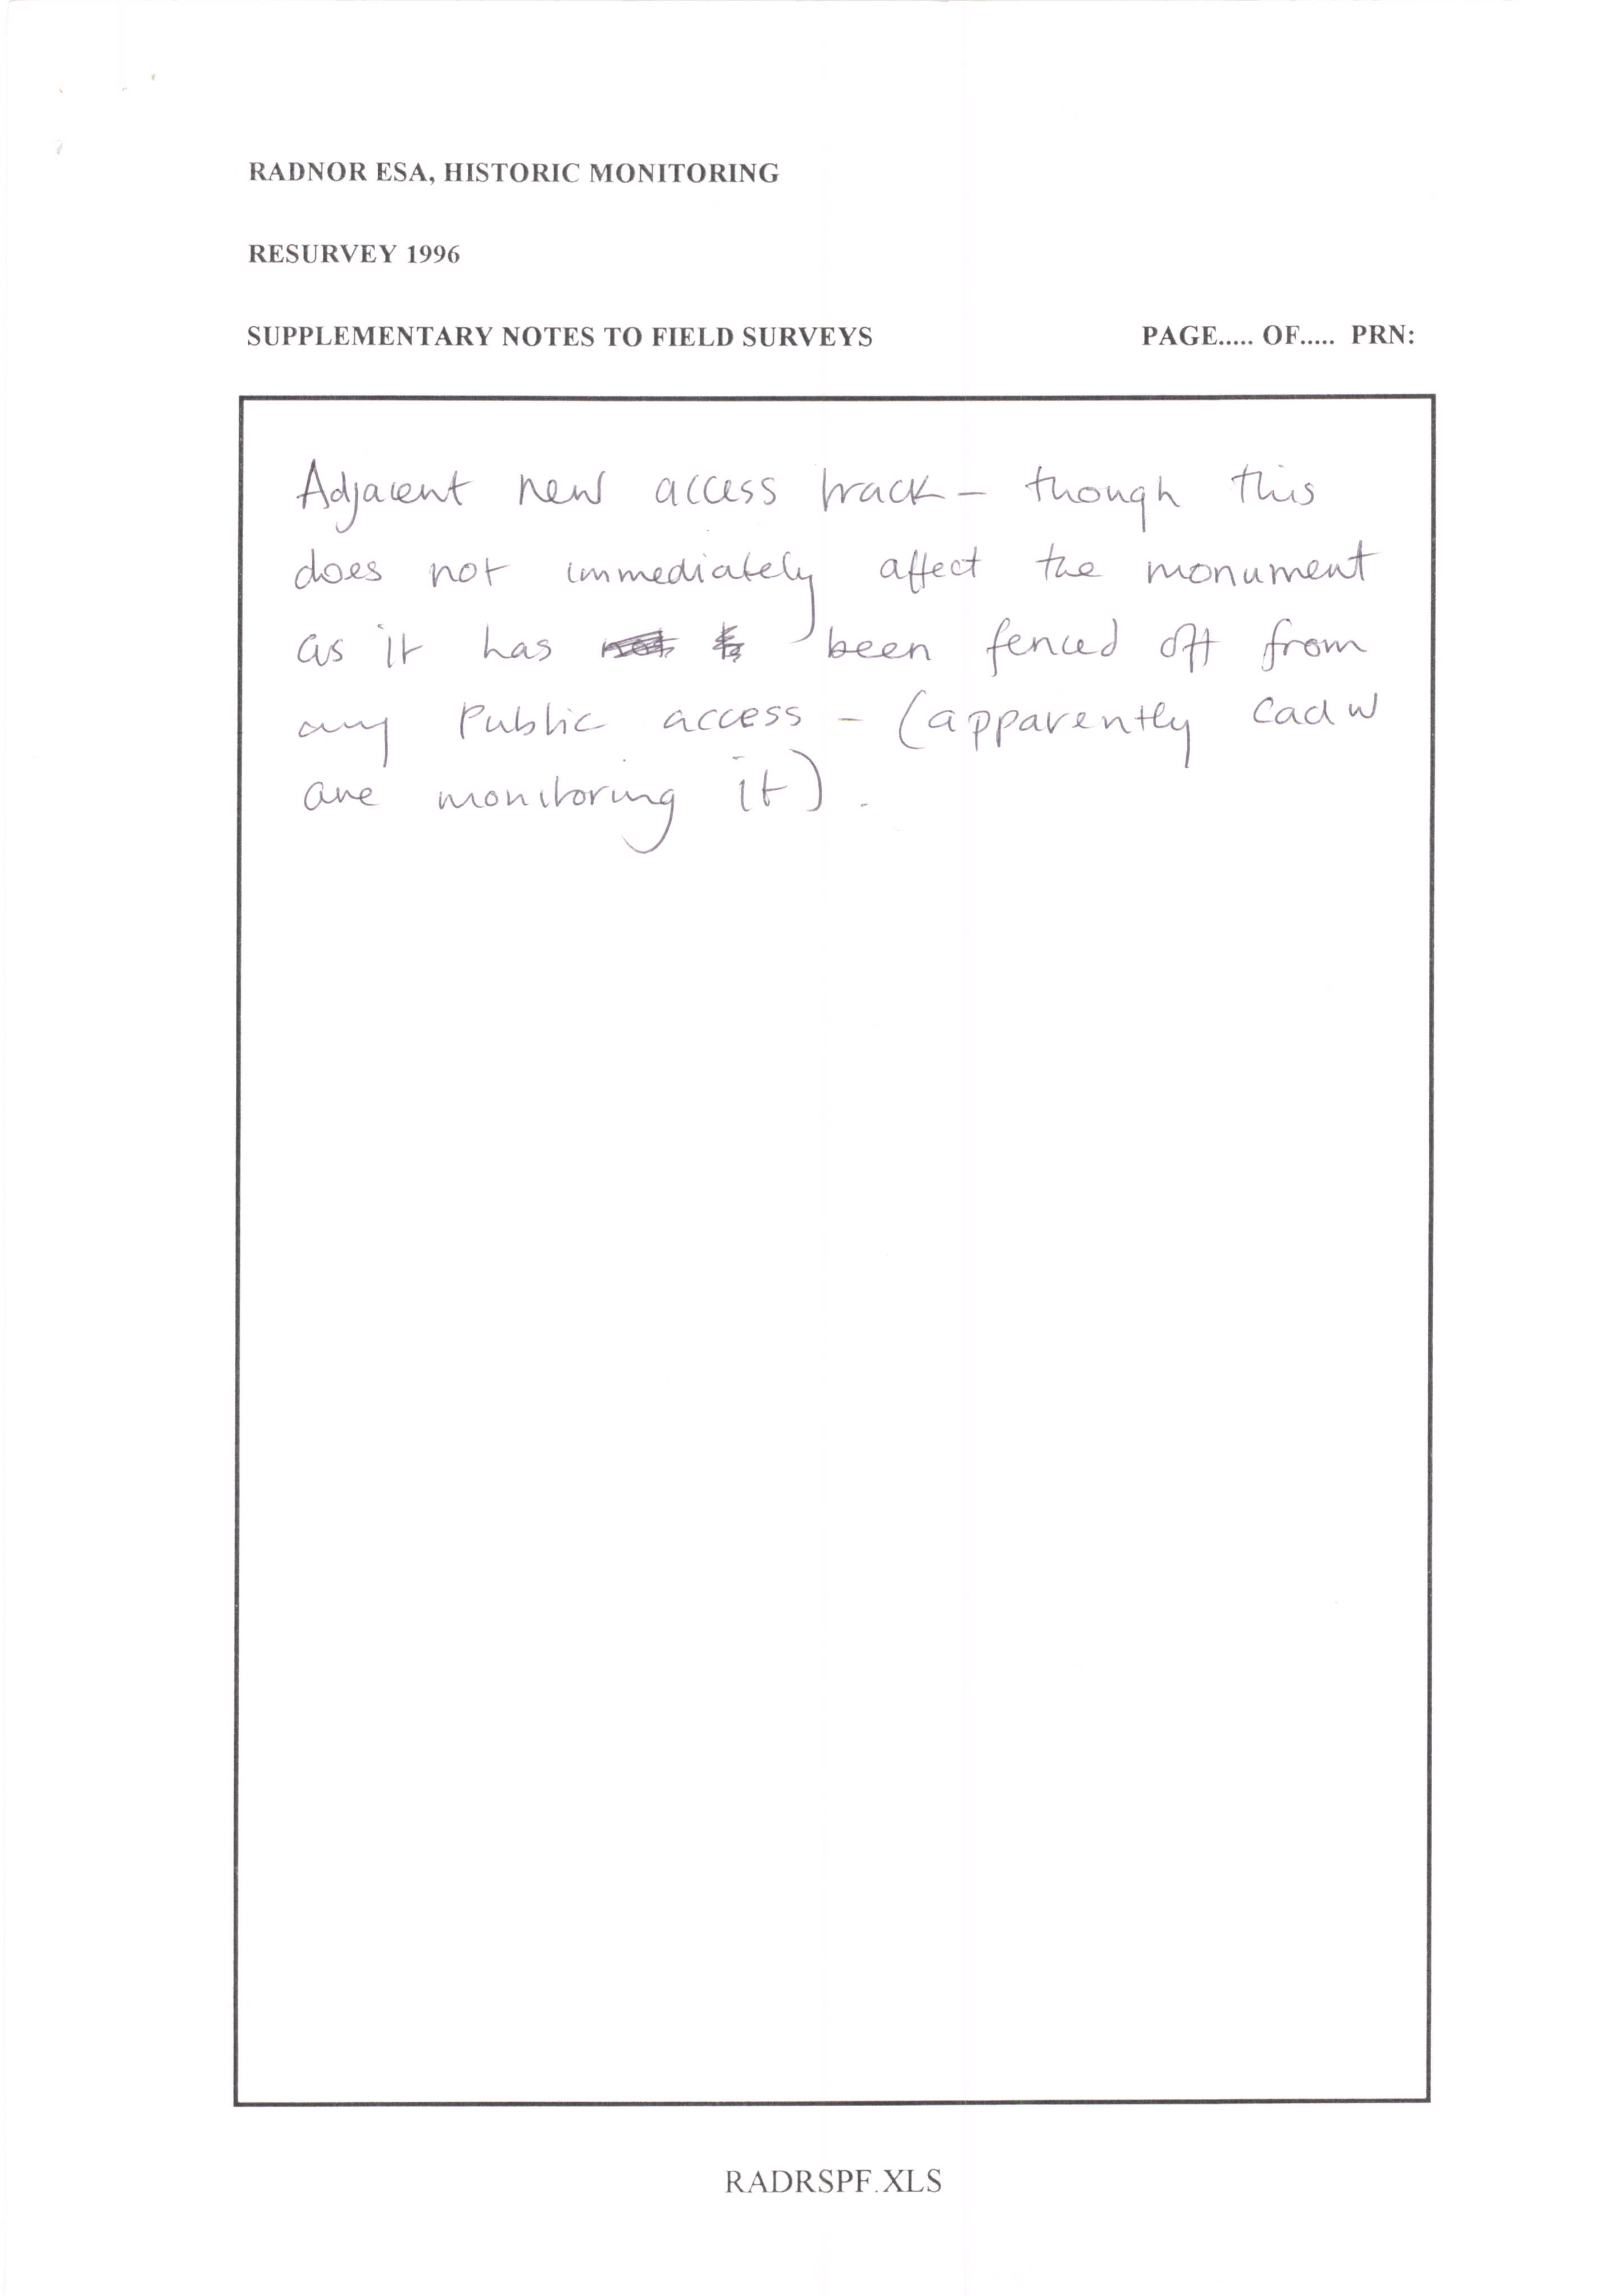 RADNOR ESA, HISTORIC MONITORING
RESURVEY 1996
SUPPLEMENTARY NOTES TO FIELD SURVEYS PAGE..... OF..... PRN:
Adjacent new access track – though this
does not immediately affect the monument
as it has been fenced off from
any Public access – (apparently Cadw
are monitoring it).
RADRSPF.XLS